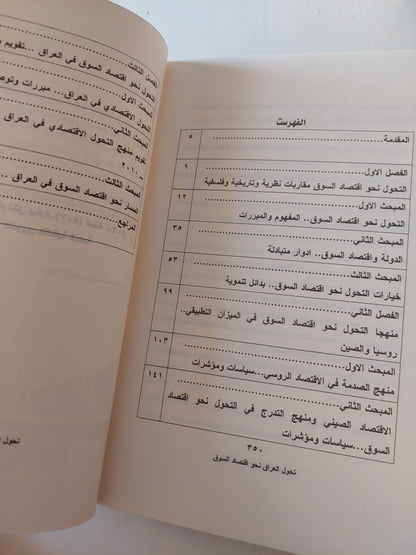 الفهرست
المقدمة.......................................... ٥
الفصل الاول.......................................... ٩
التحول نحو اقتصاد السوق مقاربات نظرية وتاريخية وفلسفية
المبحث الاول.......................................... ١٢
التحول نحو اقتصاد السوق.. المفهوم والمبررات
المبحث الثاني.......................................... ٣٥
الدولة واقتصاد السوق.. ادوار متبادلة
المبحث الثالث.......................................... ٥٣
خيارات التحول نحو اقتصاد السوق.. بدائل تنموية
الفصل الثاني.......................................... ٩٩
منهجا التحول نحو اقتصاد السوق في الميزان التطبيقي..
روسيا والصين
المبحث الاول.......................................... ١٠٣
منهج الصدمة في الاقتصاد الروسي...سياسات ومؤشرات
المبحث الثاني.......................................... ١٤١
الاقتصاد الصيني ومنهج التدرج في التحول نحو اقتصاد
السوق...سياسات ومؤشرات
٣٥٠
تحول العراق نحو اقتصاد السوق
الفصل الثالث..........................................
التحول نحو اقتصاد السوق في العراق ...تقويم
المبحث الاول..........................................
التحول الاقتصادي في العراق... مبررات
المبحث الثاني..........................................
تقويم منهج التحول الاقتصادي في العراق
٢٠١٠
المبحث الثالث..........................................
مسار نحو اقتصاد السوق في العراق ..
المراجع..........................................
تحول